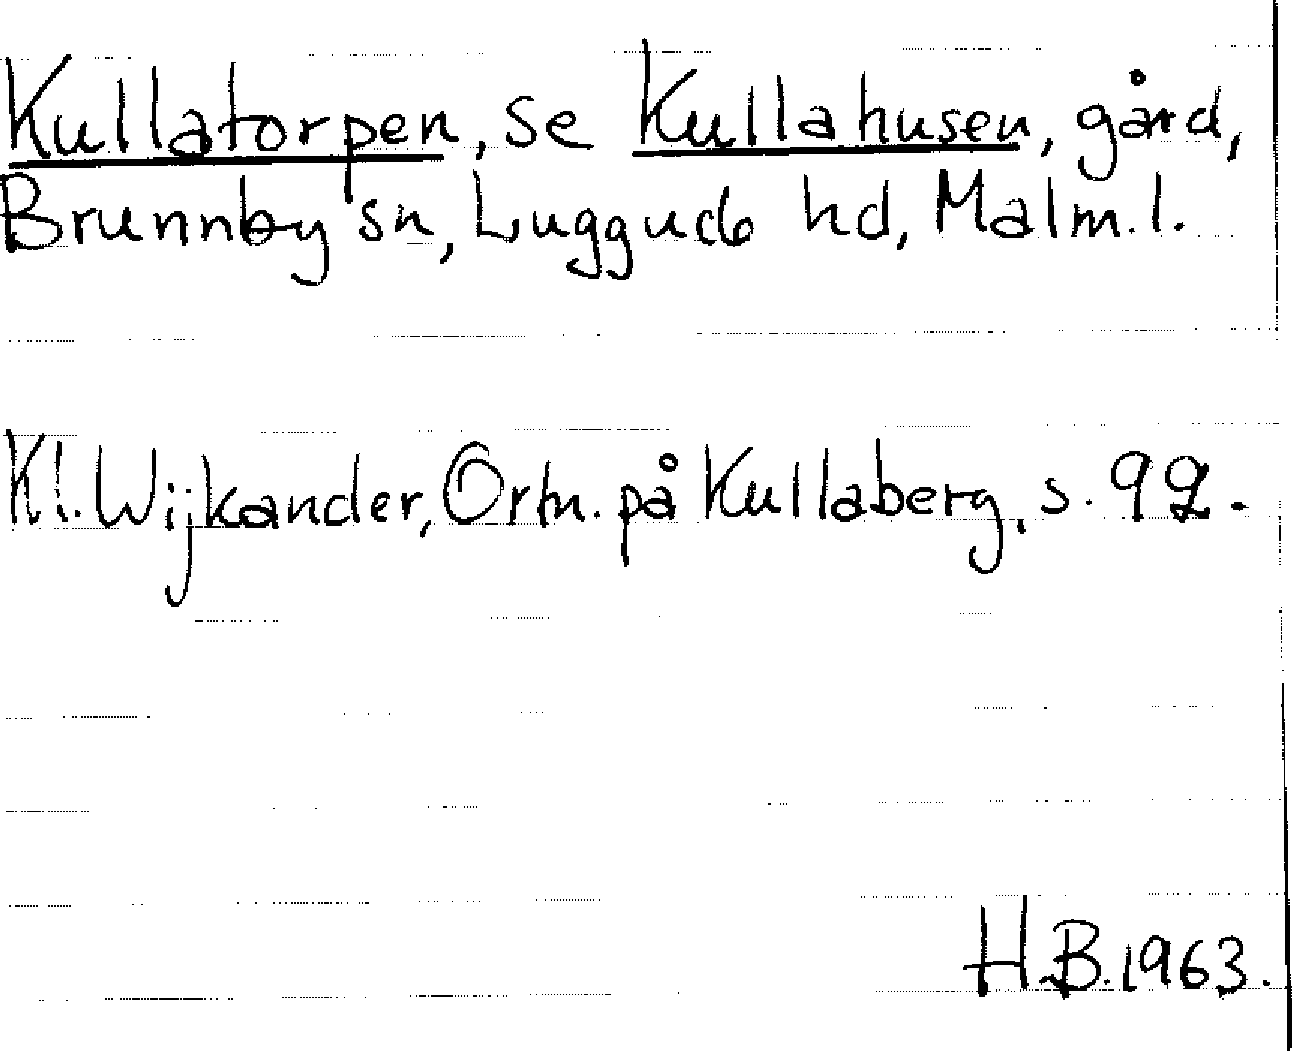 Kullatorpen, se Kullahusen, gård,
Brunnby sn, Luggude hd, Malm. l.
Kl. Wijkander, Ortn. på Kullaberg, s. 92.
H.B. 1963.